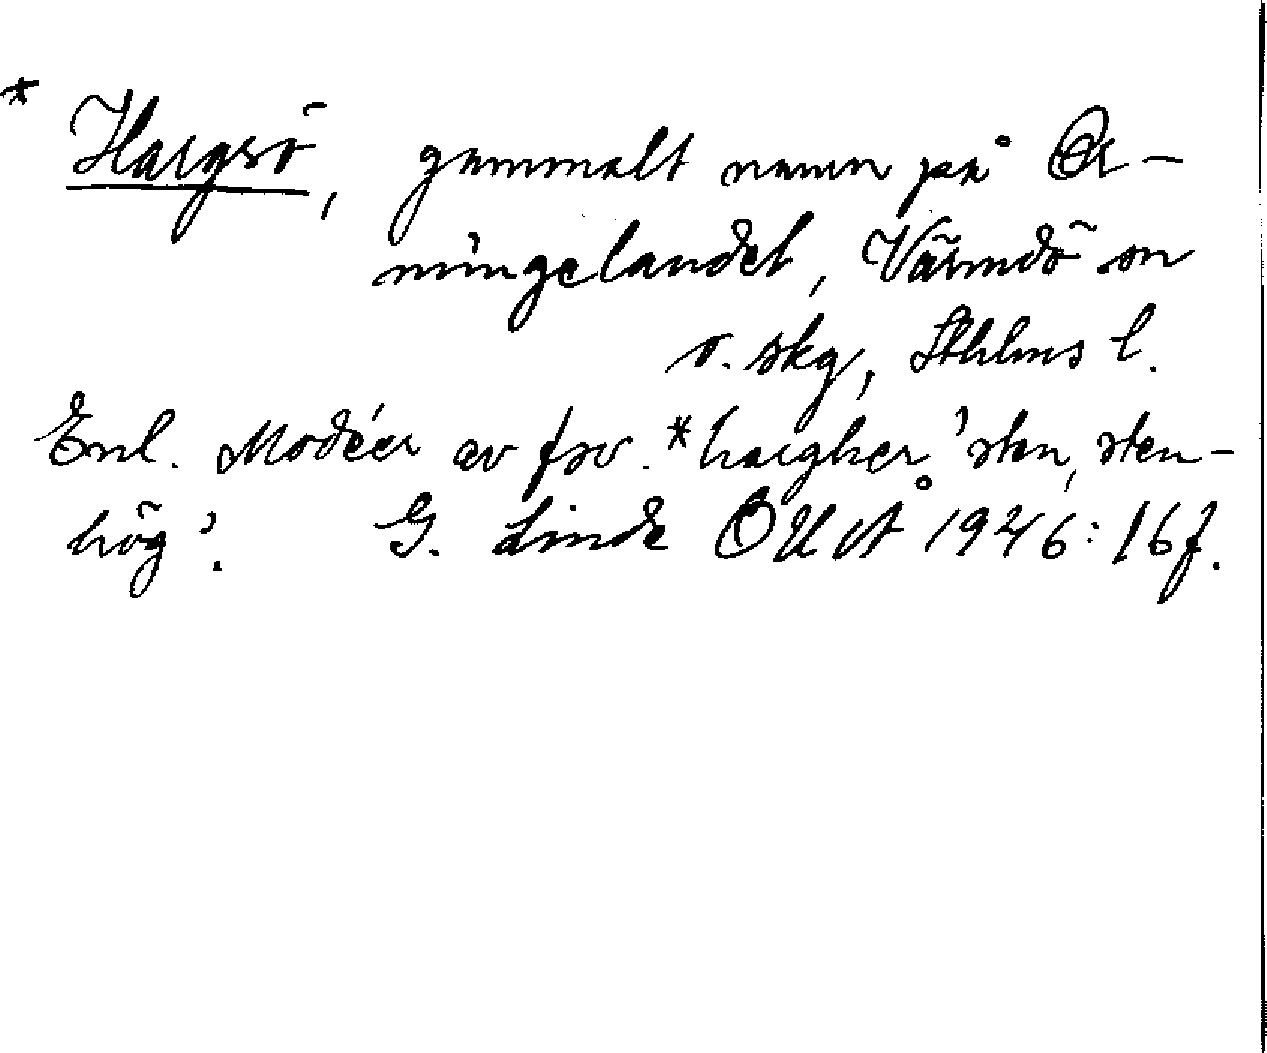 * Hargsö, gammalt namn på Or-
mingelandet, Värmdö sn
o. skg, Sthlms l.
Enl. Modéer av fsv. *hargher 'sten, sten-
hög'. G. Linde OUÅ 1946:16f.